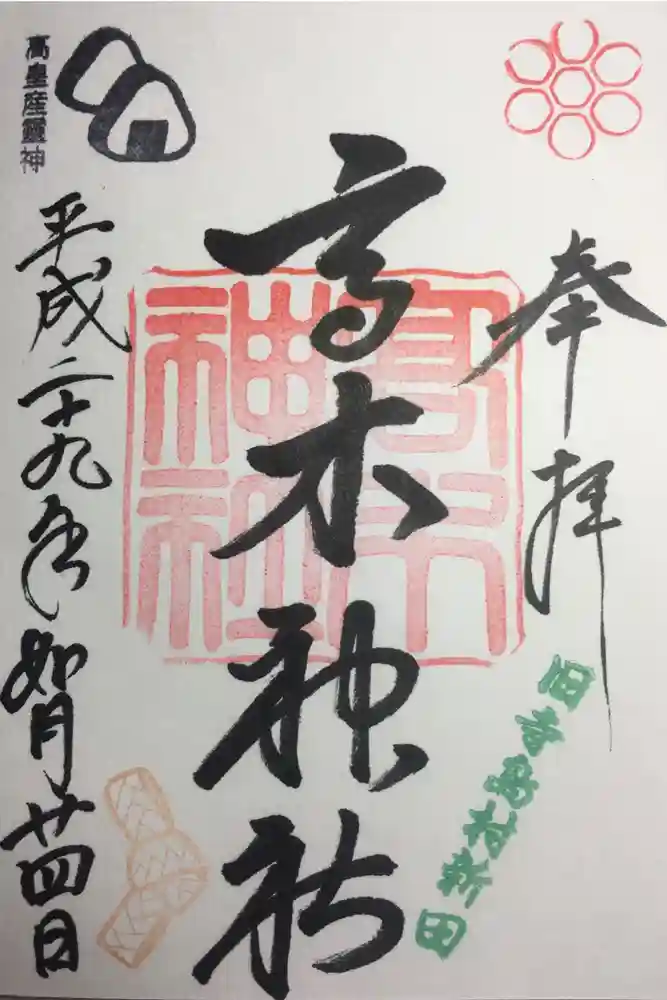 奉拝
旧寺島村新田
高木神社
高木神社
平成二十九年如月廿四日
高皇産霊神